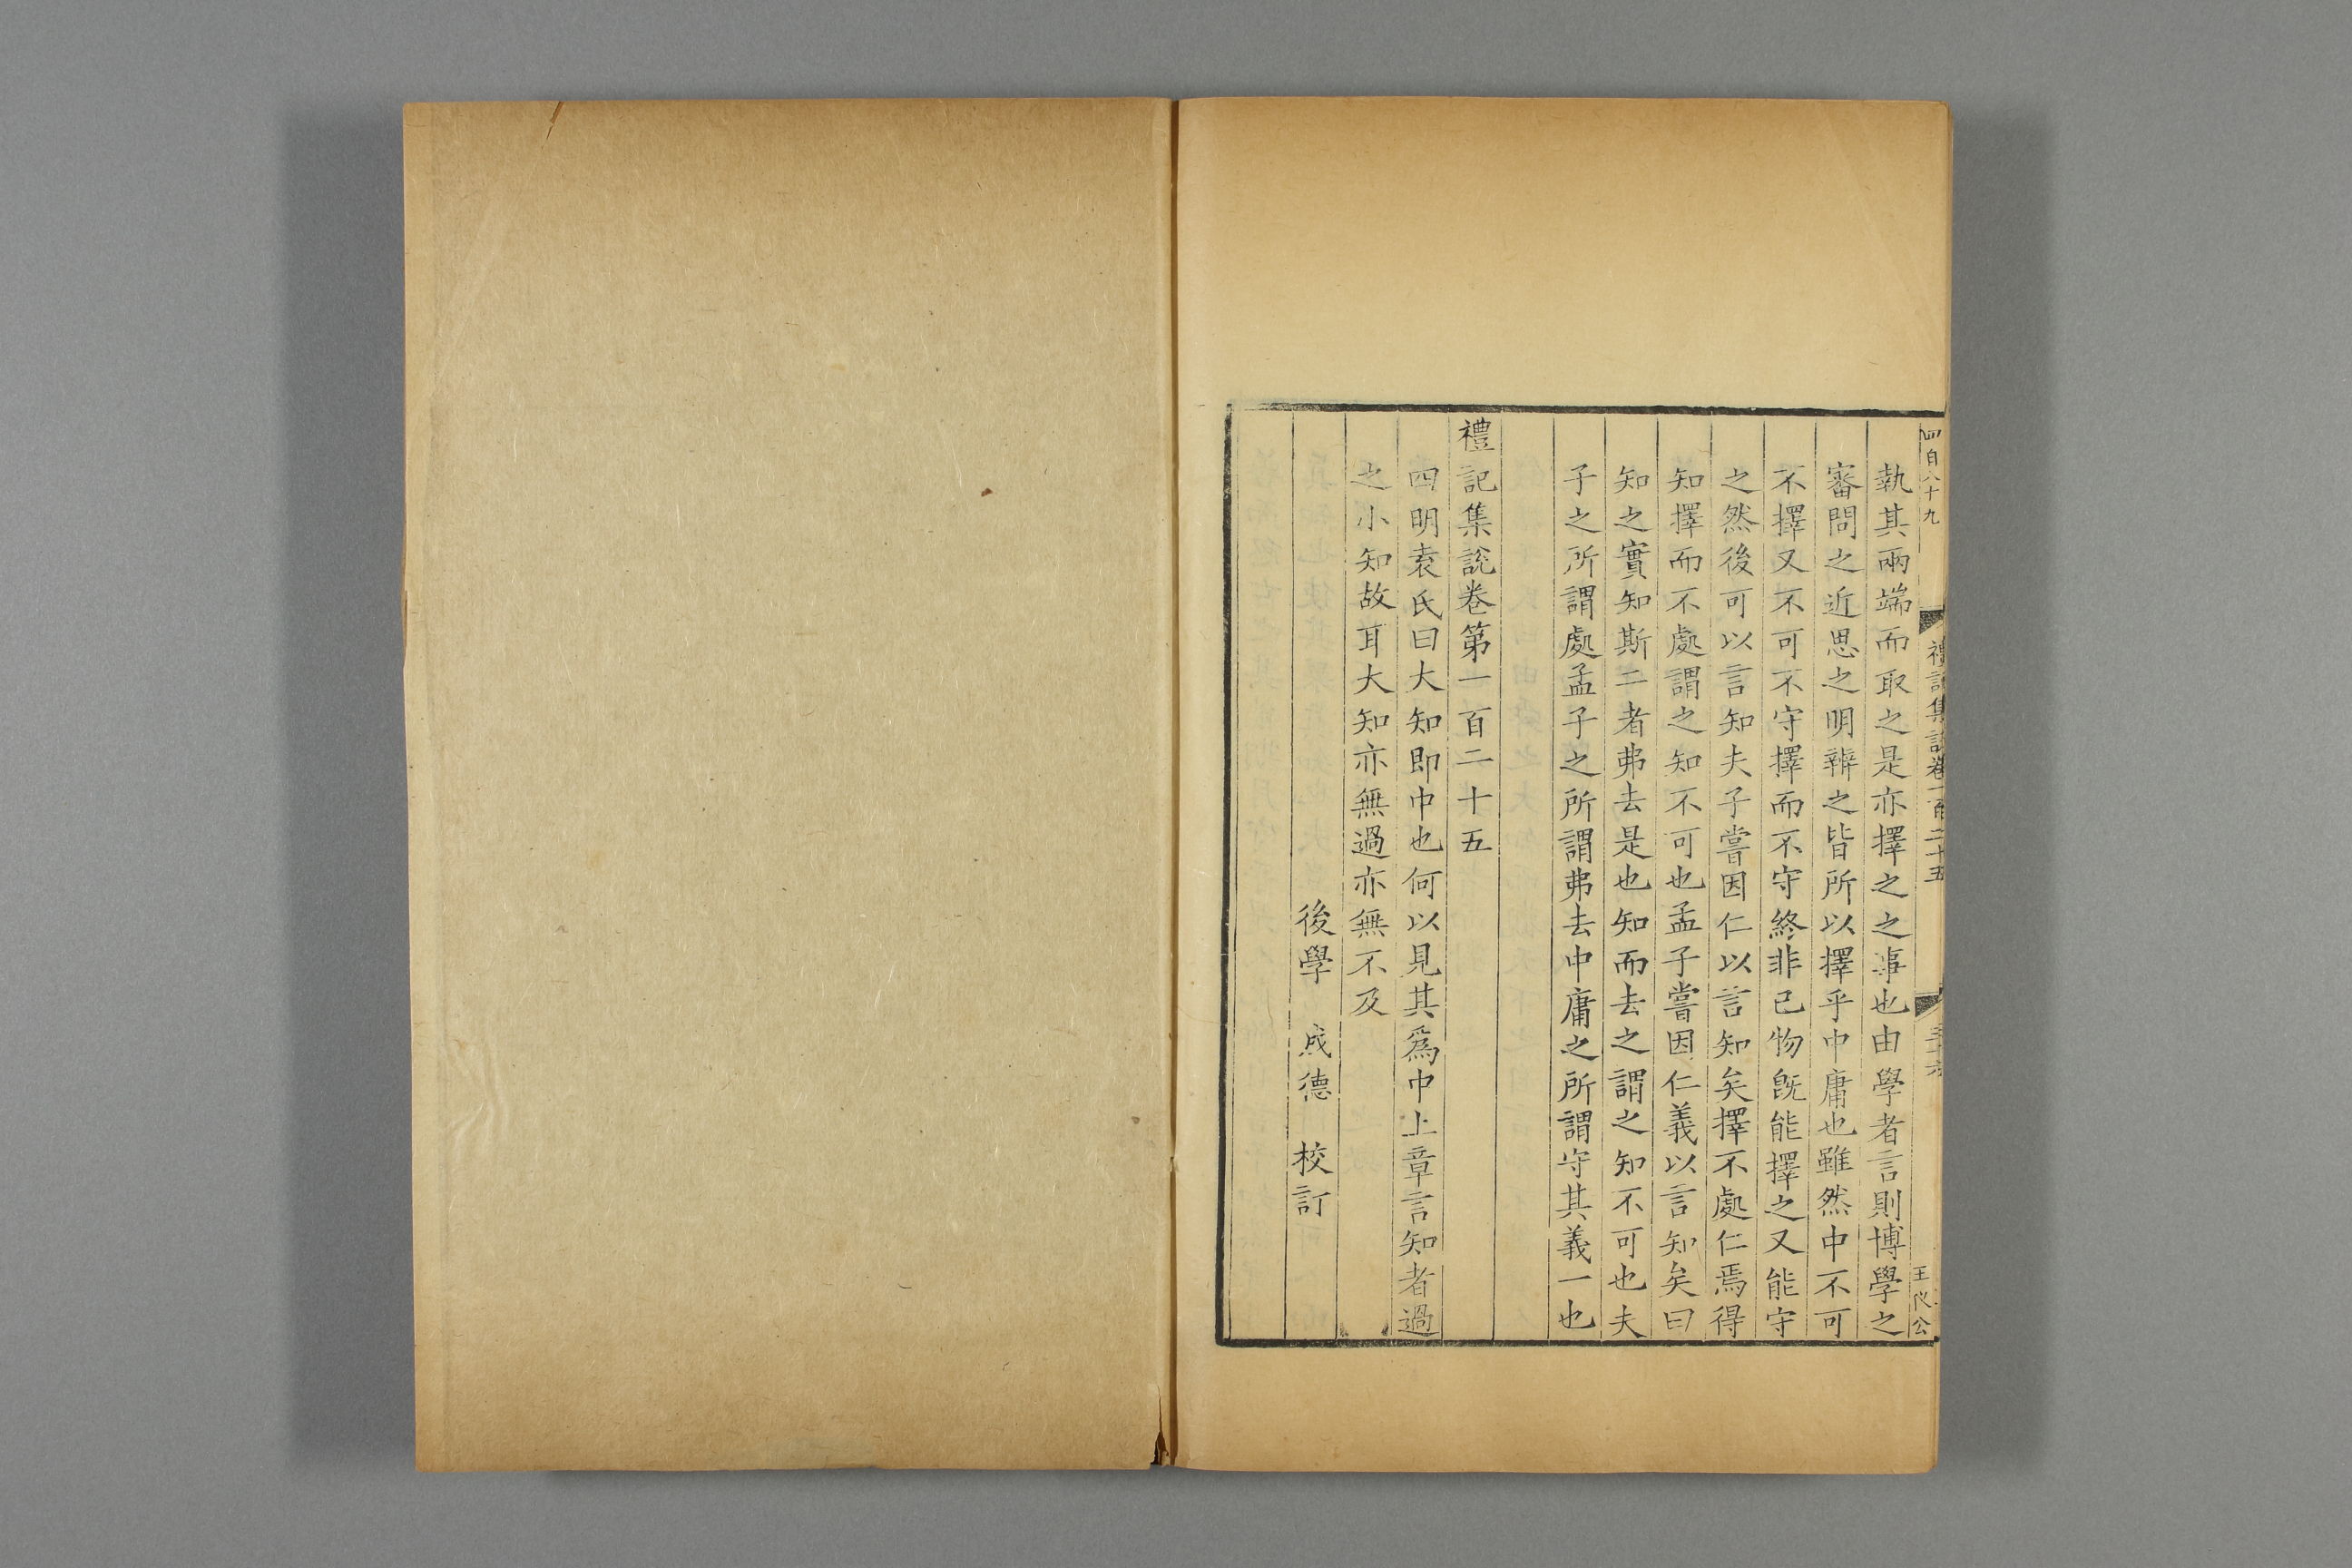 四百八十九
禮記集説卷一百二十五
三十六
執其兩端而取之是亦擇之之事也由學者言則博學之
審問之近思之明辨之皆所以擇乎中庸也雖然中不可
不擇又不可不守擇而不守終非己物旣能擇之又能守
之然後可以言知夫子嘗因仁以言知矣擇不處仁焉得
知擇而不處謂之知不可也孟子嘗因仁義以言知矣曰
知之實知斯二者弗去是也知而去之謂之知不可也夫
子之所謂處孟子之所謂弗去中庸之所謂守其義一也
禮記集說卷第一百二十五
四明袁氏曰大知即中也何以見其爲中上章言知者過
之小知故耳大知亦無過亦無不及
後學 成德 校訂